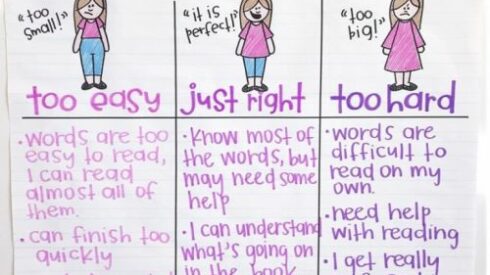 "too
small!"
too easy
• words are too
easy to read,
I can read
almost all of
them.
• can finish too
quickly
"it is
perfect!"
just right
• Know most of
the words, but
may need some
help
• I can understand
what's going on
in the book
"too
big!"
too hard
• words are
difficult to
read on my
own.
• need help
with reading
• I get really